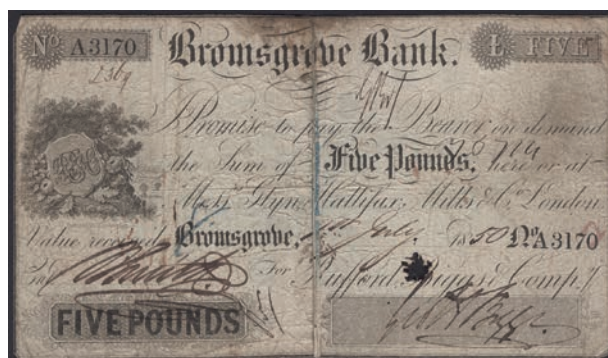 No A3170 Bromsgrove Bank. £ FIVE
I Promise to pay the Bearer on demand
the Sum of Five Pounds, here or at
Messrs Glyn, Hallifax, Mills & Co. London
Value received Bromsgrove, July 1850 No A3170
For Rufford, Biggs & Compy
FIVE POUNDS